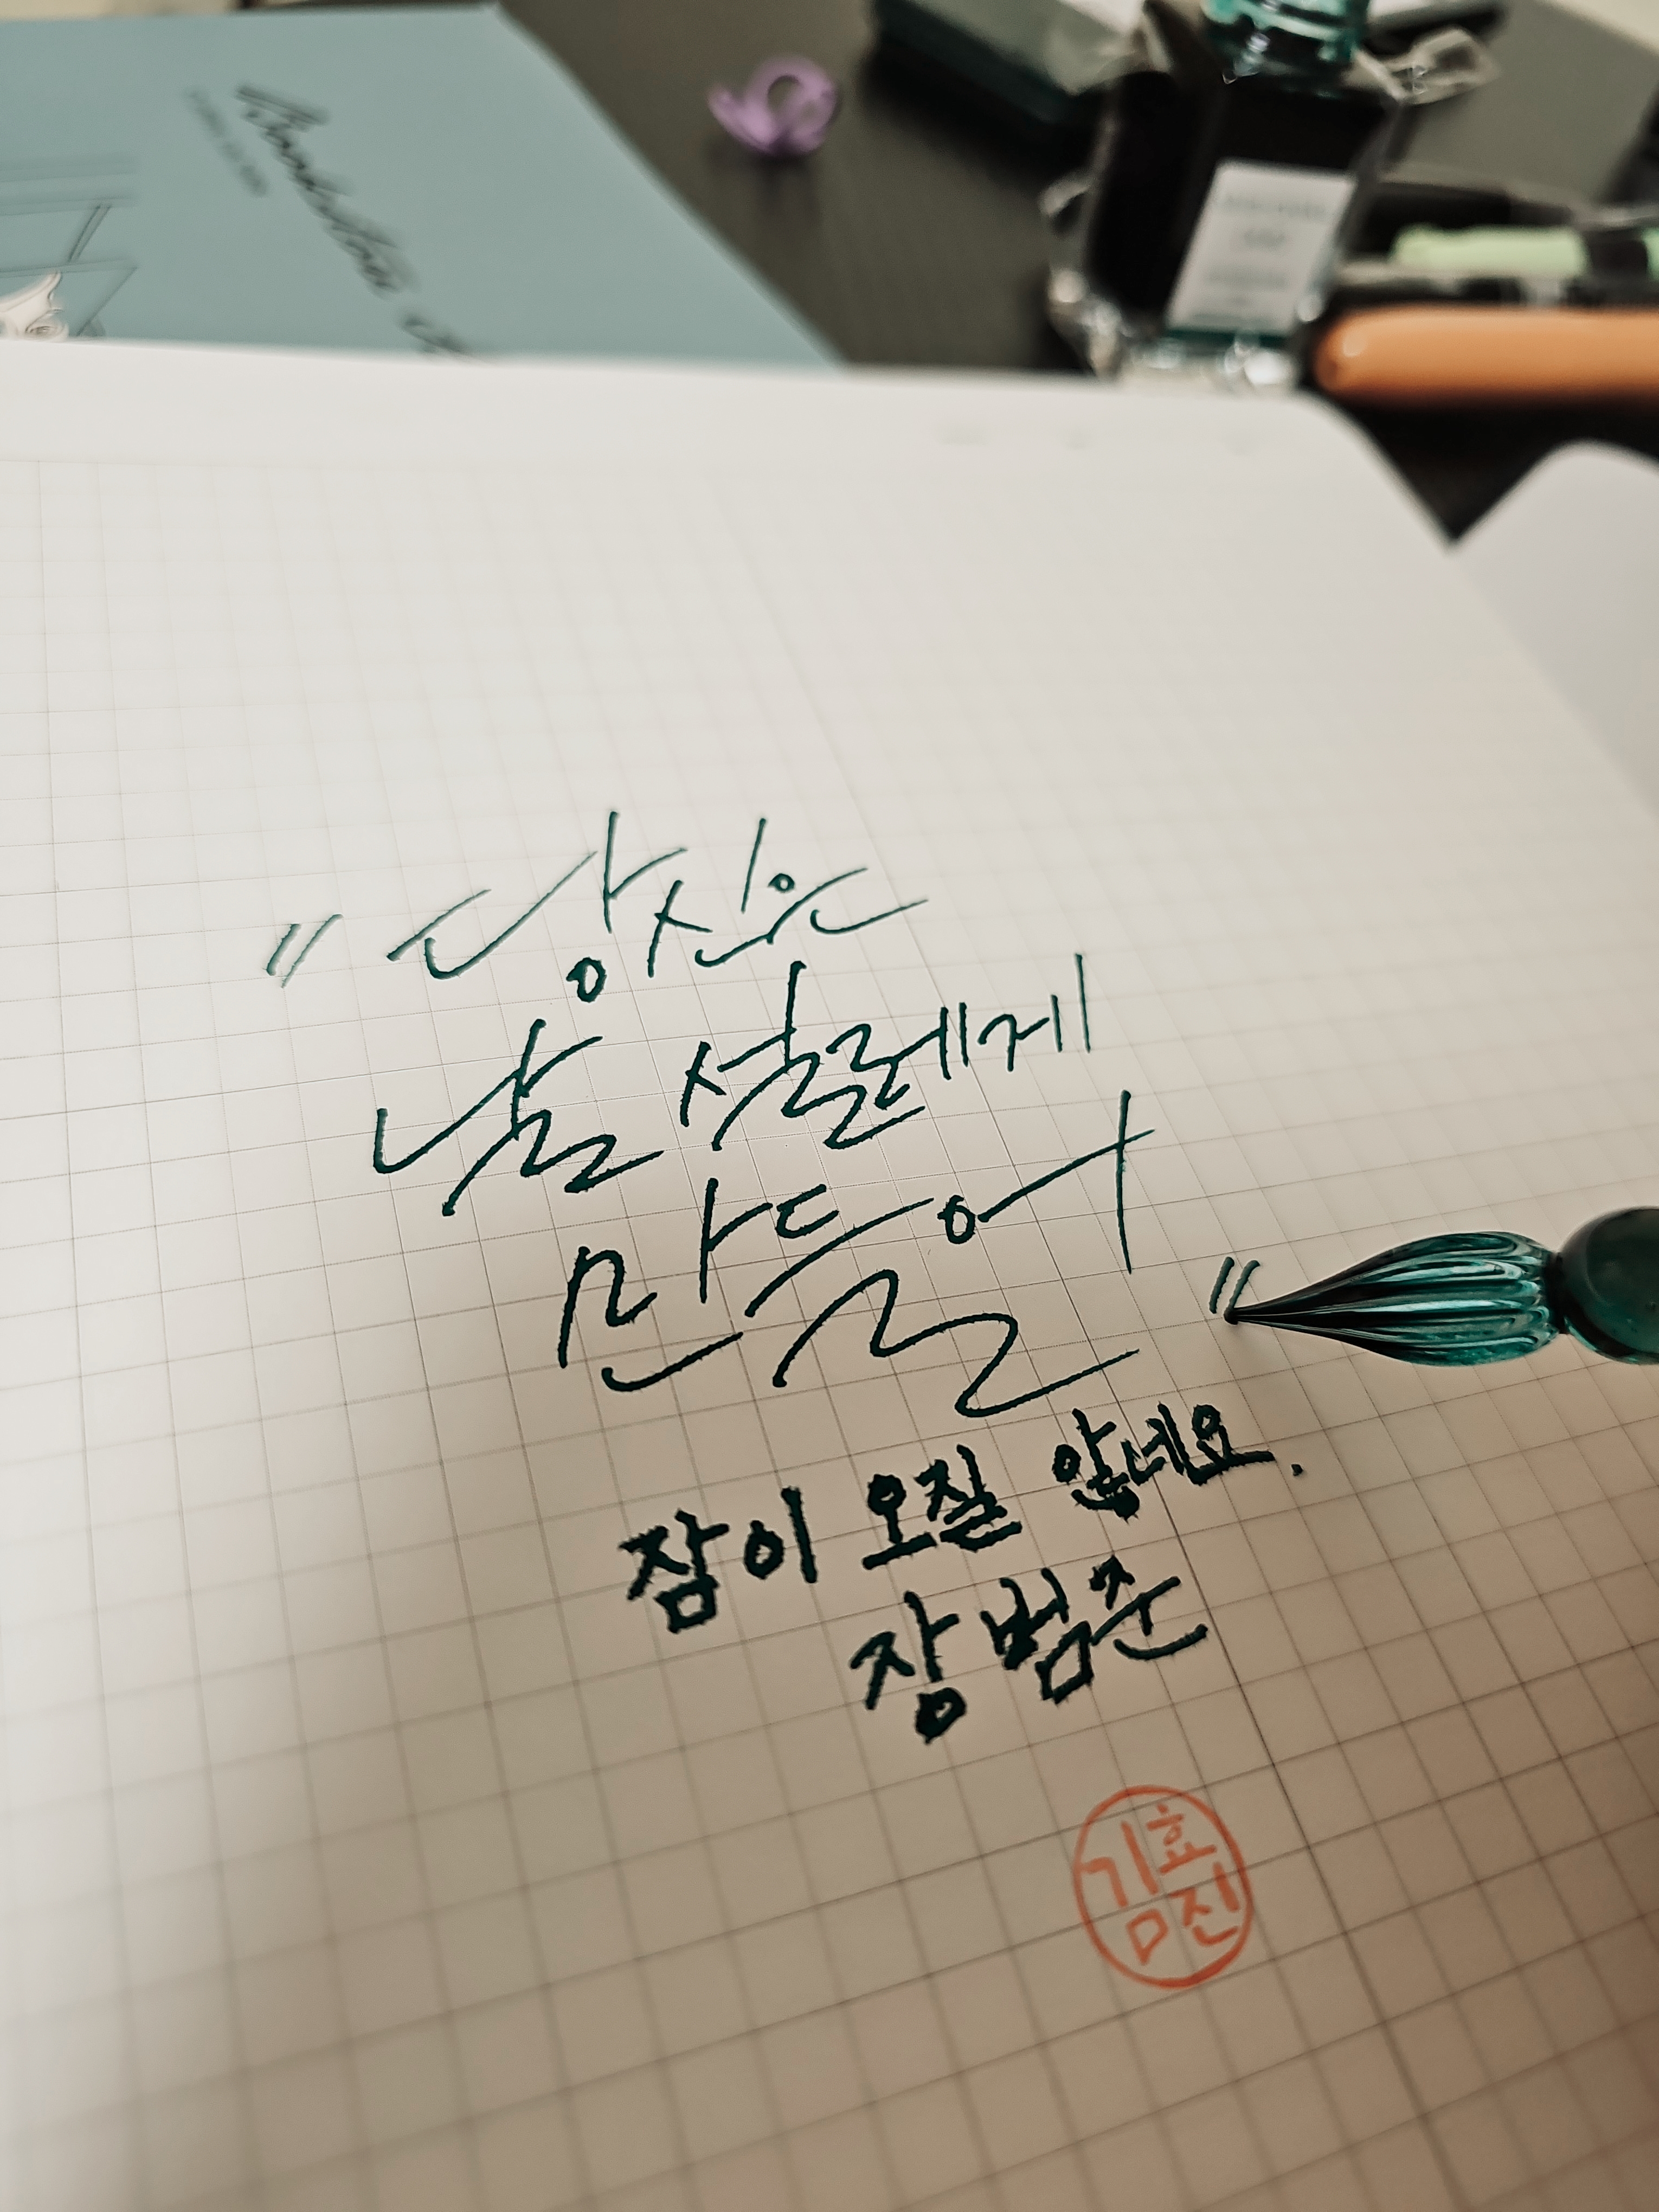 "당신은
날 설레게
만들어"
잠이 오질 않네요.
장범준
김효진